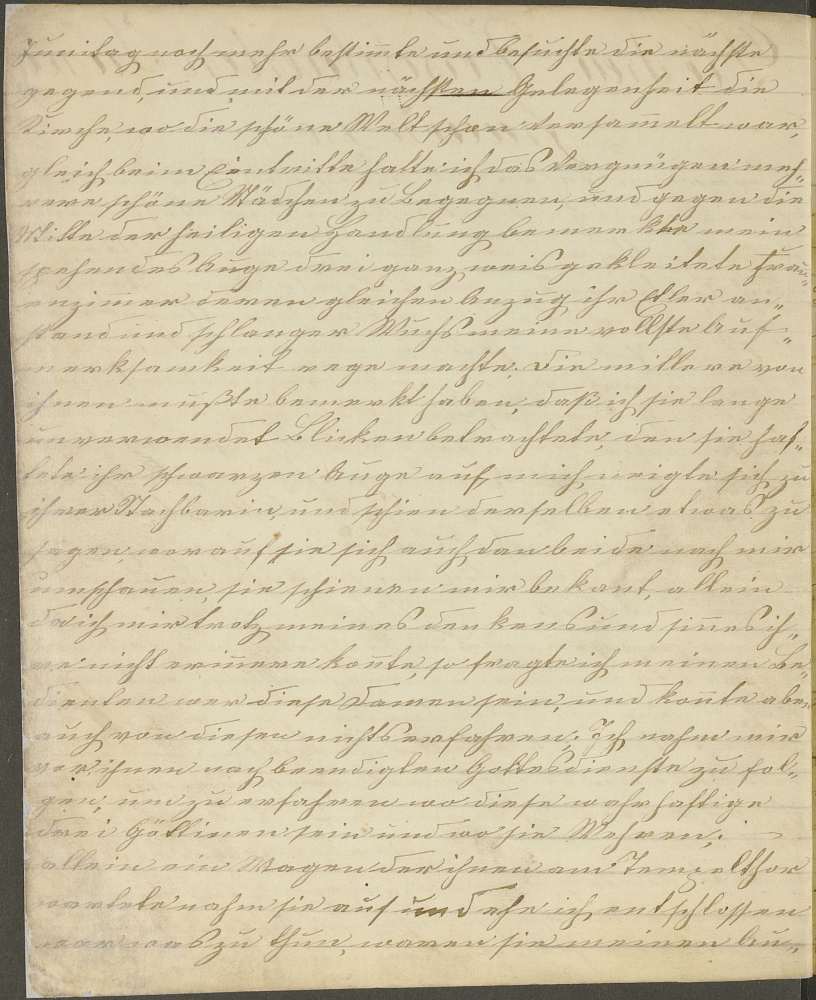 Junitag noch mehr bestim̄te und besuchte die nächste
gegend, und mit der nächsten Gelegenheit die
Kirche, wo die schöne Welt schon versam̄elt war,
gleich beim Eintritte hatte ich das Vergnügen meh„
rere schöne Mädchen zu begegnen, und gegen die
Mitte der heiligen Handlung bemerkte mein
spehendes Auge drei ganz weis gekleitete Frau„
enzimmer deren gleichen Anzug ihr Etler an„
stand und schlanger Wuchs meine vollste Auf„
merksamkeit rege machte. Die mittlere von
ihnen mußte bemerkt haben, daß ich sie lange
unverwendet Blicken betrachtete, den sie haf„
tete ihr schwarzen Auge auf mich, neigte sich zu
ihrer Nachbarin, und schien derselben etwas zu
sagen, worauf sie sich auch dan beide nach mir
umschauen, sie schienen mir bekant, allein
da ich mir trotz meines denkens und sin̄es ih„
re nicht erin̄ere kon̄te, so fragte ich meinen Be„
dienten wer diese Damen sein, und kon̄te aber
auch von diesen nichts erfahren; Ich nahm mir
vor, ihnen nach beendigten Gottesdienste zu fol„
gen, um zu erfahren wo diese wahrhaftige
drei Göttinen sein und wo sie Wohren;
allein ein Wagen der ihnen am Tempelthor
wartete nahm sie auf und ehe ich entschlossen
war was zu thun, waren sie meinen Au„